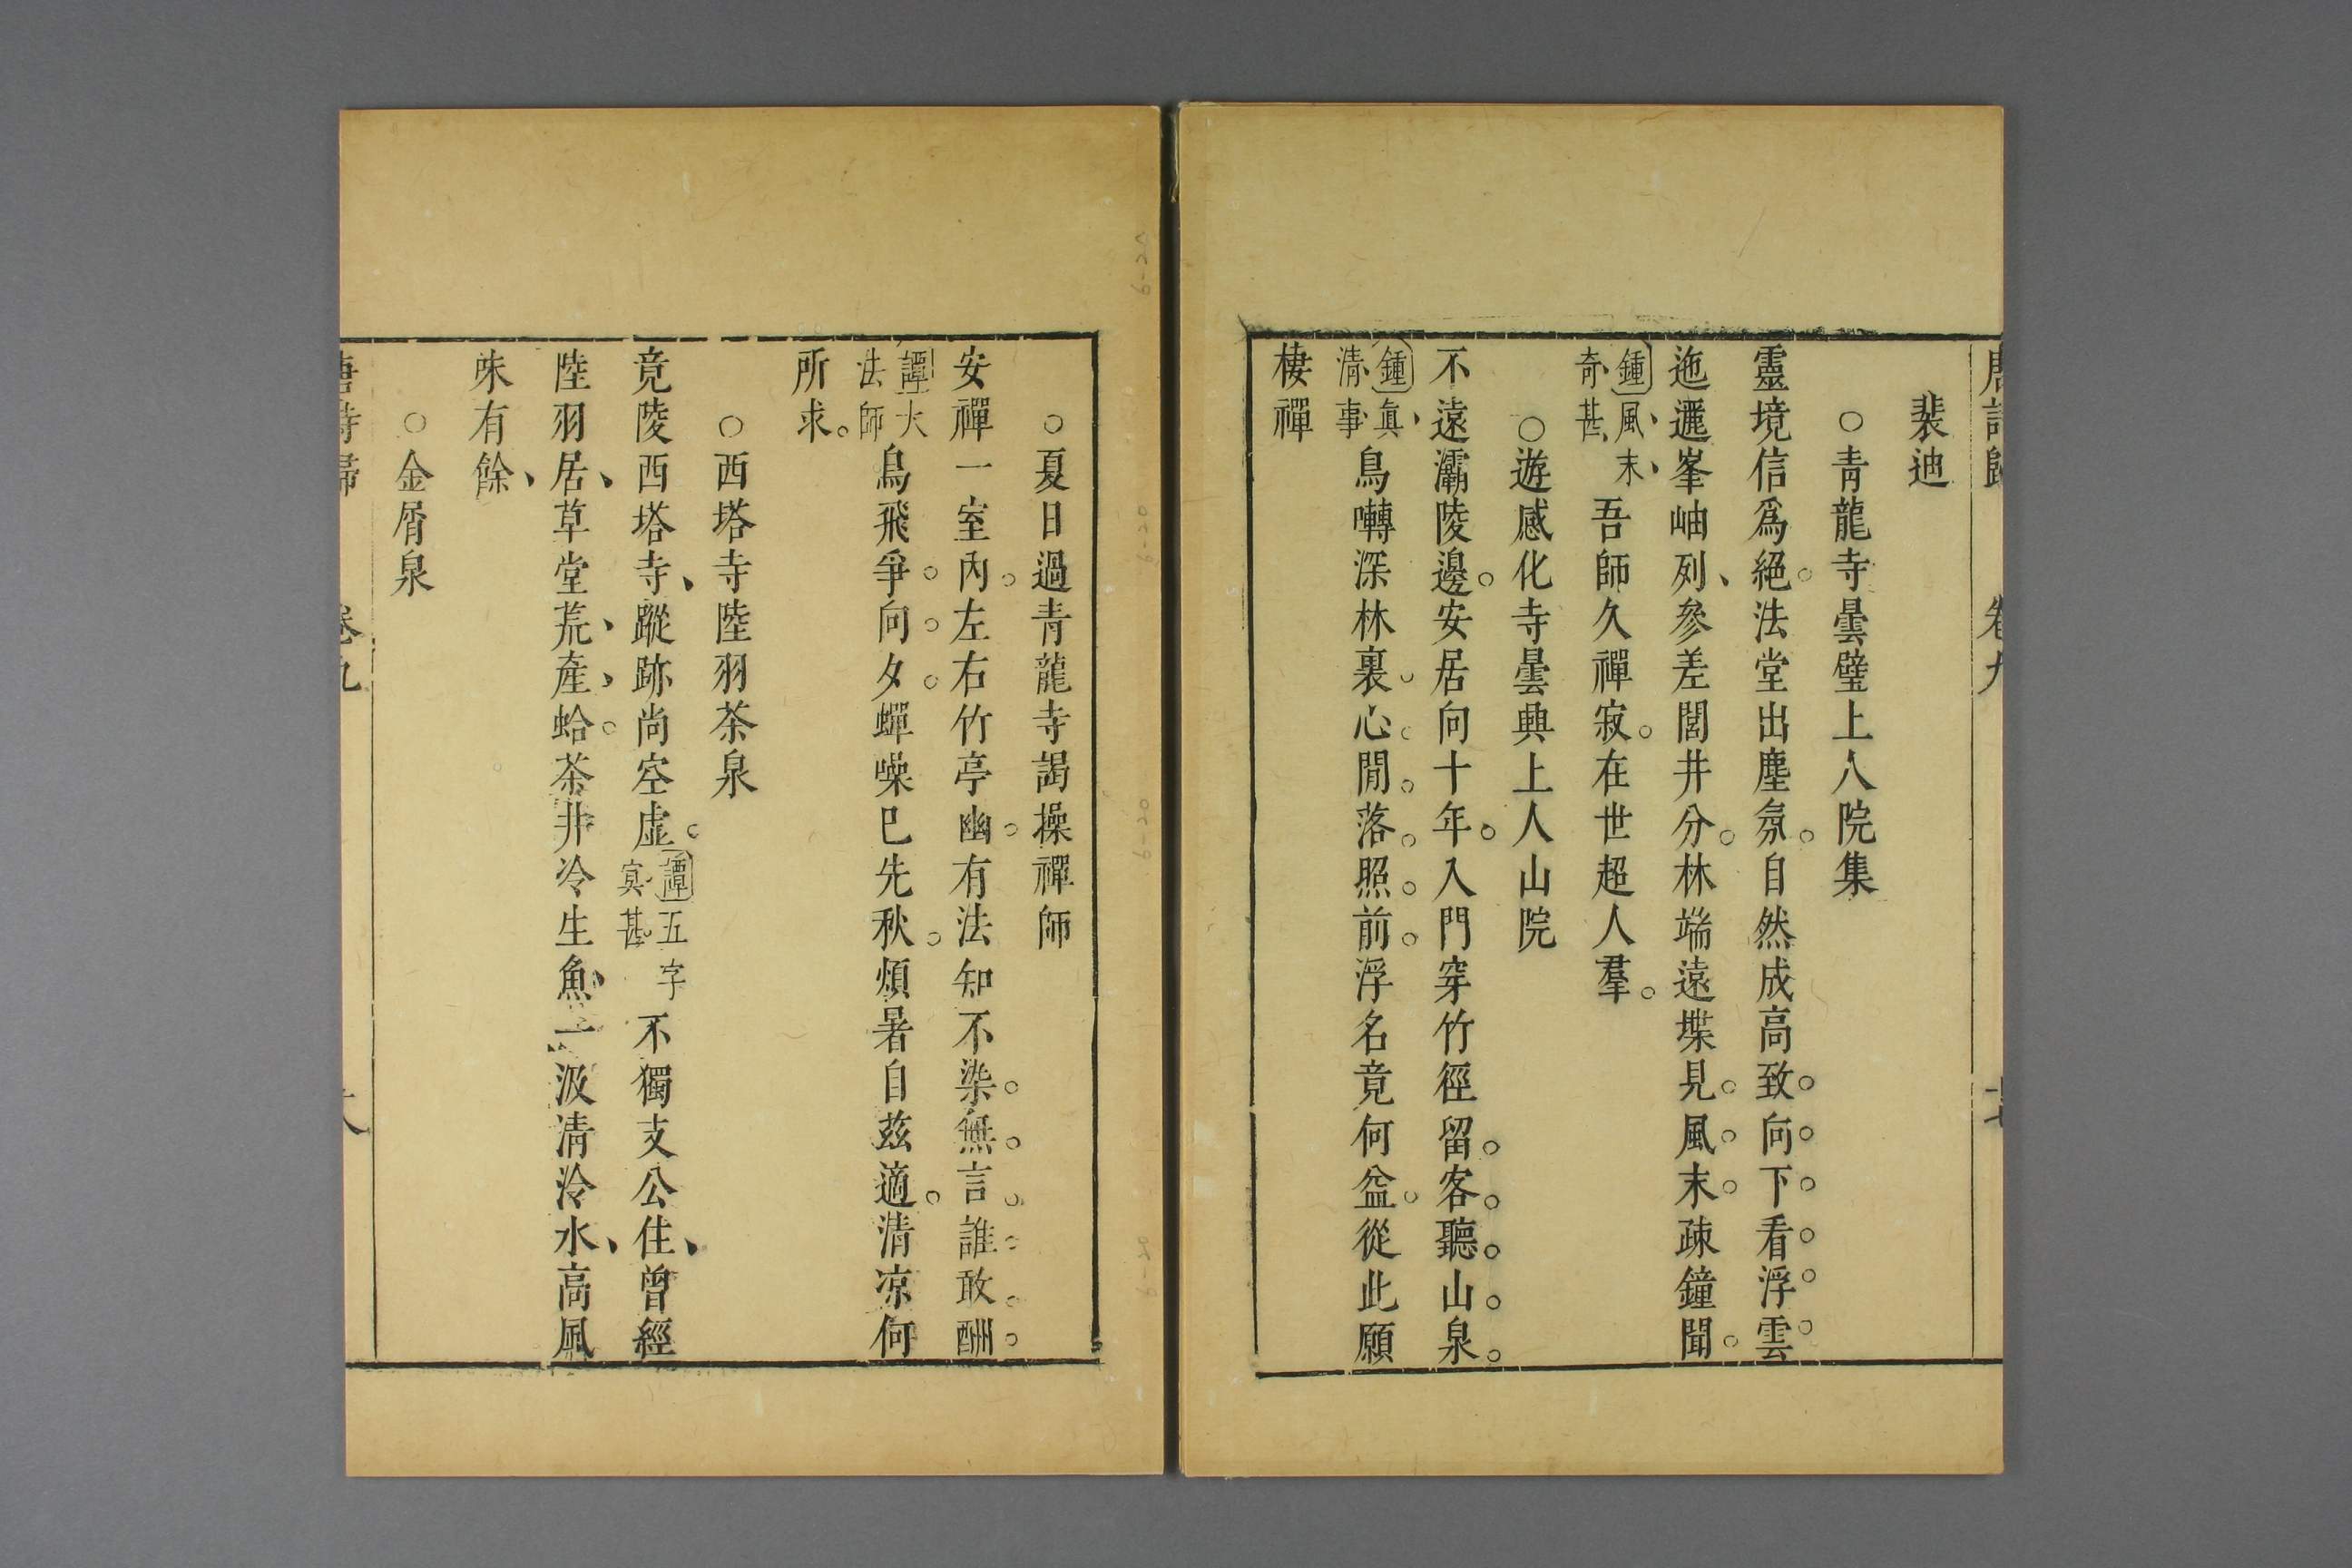 唐詩歸 卷九
裴迪
○青龍寺曇璧上人院集
靈境信爲絕。法堂出塵氛。自然成高致。向下看浮雲
迤邐峯岫列、參差閭井分。林端遠堞見。風末疎鐘聞。
鍾風末奇甚 吾師久禪寂。在世超人羣。
○遊感化寺曇興上人山院
不遠灞陵邊。安居向十年。入門穿竹徑留客聽山泉。
鍾眞清事 鳥囀深林裏心閒落照前。浮名竟何益。從此願
棲禪
○夏日過青龍寺謁操禪師
安禪一室內。左右竹亭幽。有法知不染無言誰敢酬。
譚大法師 鳥飛爭向夕蟬噪已先秋。煩暑自茲適。清凉何
所求。
○西塔寺陸羽茶泉
竟陵西塔寺、蹤跡尚空虛。譚五字寞甚 不獨支公住、曾經
陸羽居、草堂荒產蛤。茶井冷生魚、一汲清泠水、高風
味有餘、
○金屑泉
唐詩歸 卷九